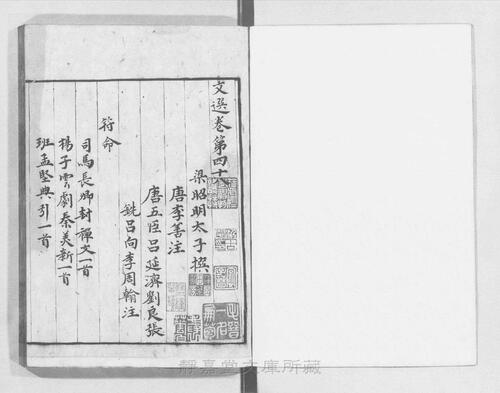 文選卷第四十
梁昭明太子撰
唐李善注
唐五臣呂延濟劉良張
銑呂向李周翰注
符命
司馬長卿封禪文一首
揚子雲劇秦美新一首
班孟堅典引一首
靜嘉堂文庫所藏